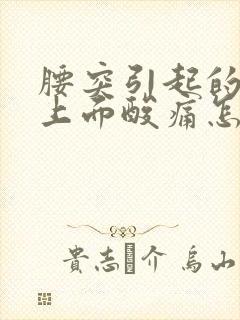 腰突引起的
上而酸痛怎
貴志 介 烏山